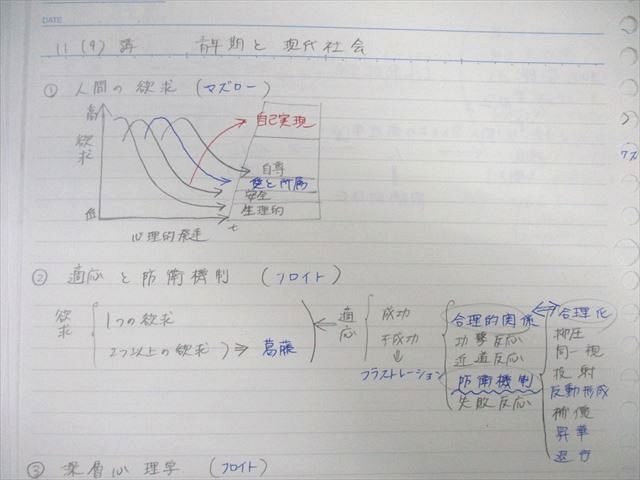 DATE
11 (9) 講 青年期と現代社会
① 人間の欲求 (マズロー)
高
欲求
低
自己実現
自尊
愛と所属
安全
生理的
心理的発達
t
② 適応と防衛機制 (フロイト)
欲求
1つの欲求
2つ以上の欲求 ⇒ 葛藤
適応
成功
不成功
フラストレーション
合理的関係
攻撃反応
近道反応
防衛機制
失敗反応
合理化
抑圧
同一視
投射
反動形成
補償
昇華
退行
③ 深層心理学 (フロイト)